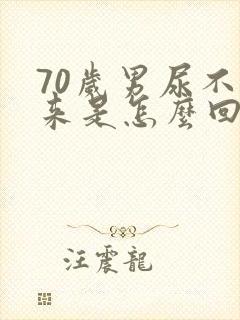 70歲男尿不
來是怎麼回
汪震龍